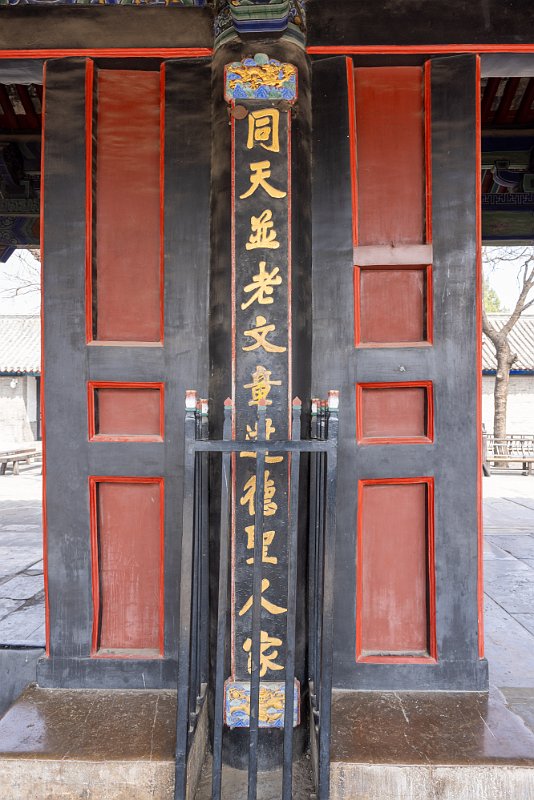 同天並老文章道德聖人家